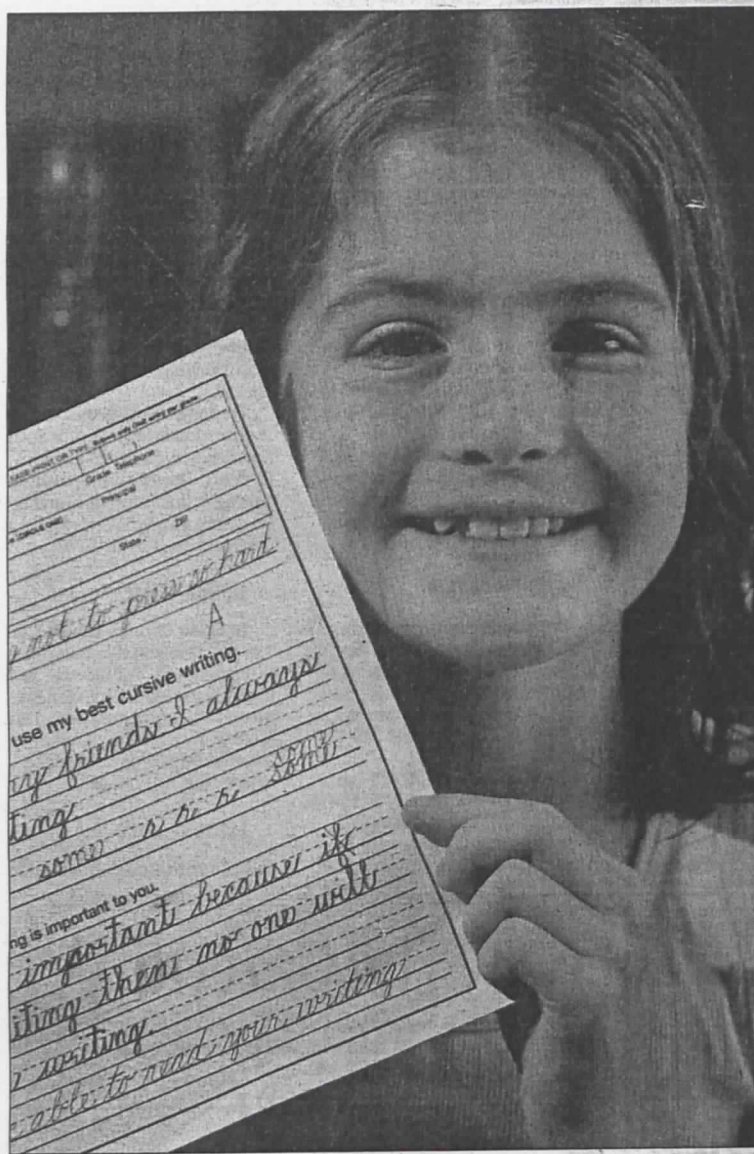 PLEASE PRINT OR TYPE. Submit only one entry per grade.
Grade Telephone
Principal
(CIRCLE ONE)
State ZIP
not to press so hard.
A
use my best cursive writing.
friends I always
ting
some s s s some
some
ng is important to you.
important because if
iting then no one will
writing.
able to read your writing